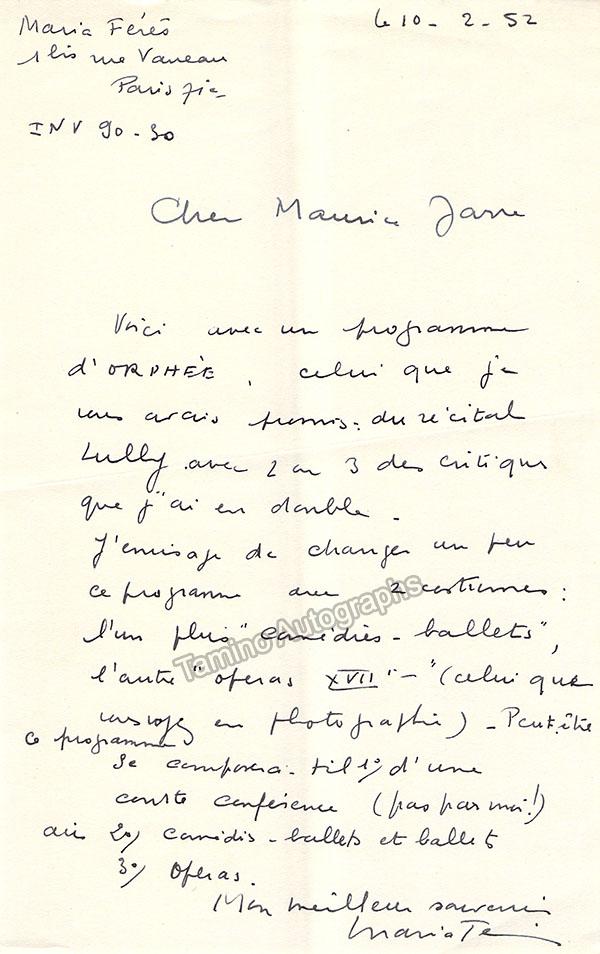 Maria Férès
1 bis rue Vaneau
Paris 7ie
INV 90-30
le 10-2-52
Cher Maurice Jarre
Voici avec un programme
d'ORPHÉE, celui que je
vous avais promis: du récital
Lully avec 2 ou 3 des critiques
que j'ai en double -
J'envisage de changer un peu
ce programme avec 2 costumes:
l'un plus "comédies-ballets",
l'autre "operas XVII" - (celui que
vous voyez en photographie) - Peut-être
ce programme
se composera-t-il 1°/ d'une
courte conférence (pas par moi!)
2°/ comédies-ballets et ballets
3°/ Operas.
Mon meilleur souvenir
Maria
Tamino Autographs